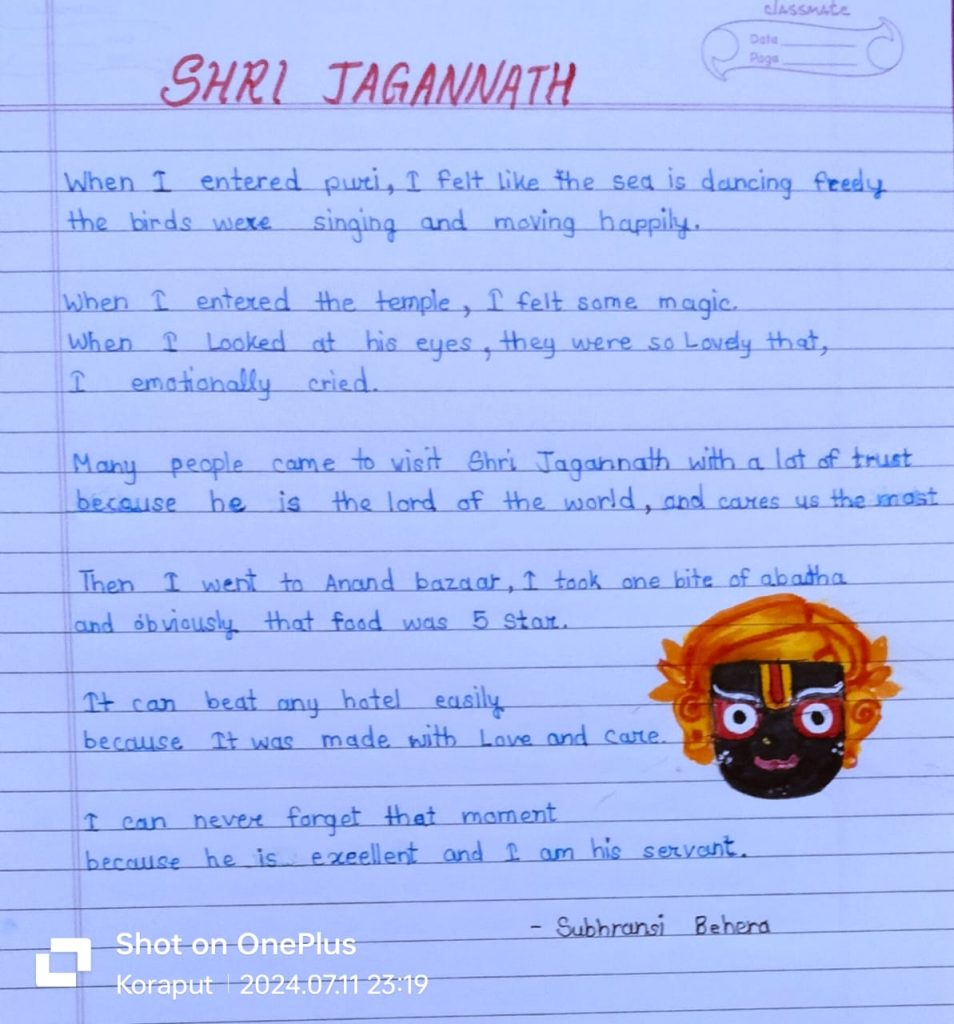 classmate
Date
Page
SHRI JAGANNATH
When I entered puri, I felt like the sea is dancing freely
the birds were singing and moving happily.
When I entered the temple, I felt some magic.
When I Looked at his eyes, they were so Lovely that,
I emotionally cried.
Many people came to visit Shri Jagannath with a lot of trust
because he is the lord of the world, and cares us the most
Then I went to Anand bazaar, I took one bite of abadha
and obviously that food was 5 star.
It can beat any hotel easily
because It was made with Love and care.
I can never forget that moment
because he is exeellent and I am his servant.
- Subhransi Behera
Shot on OnePlus
Koraput | 2024.07.11 23:19